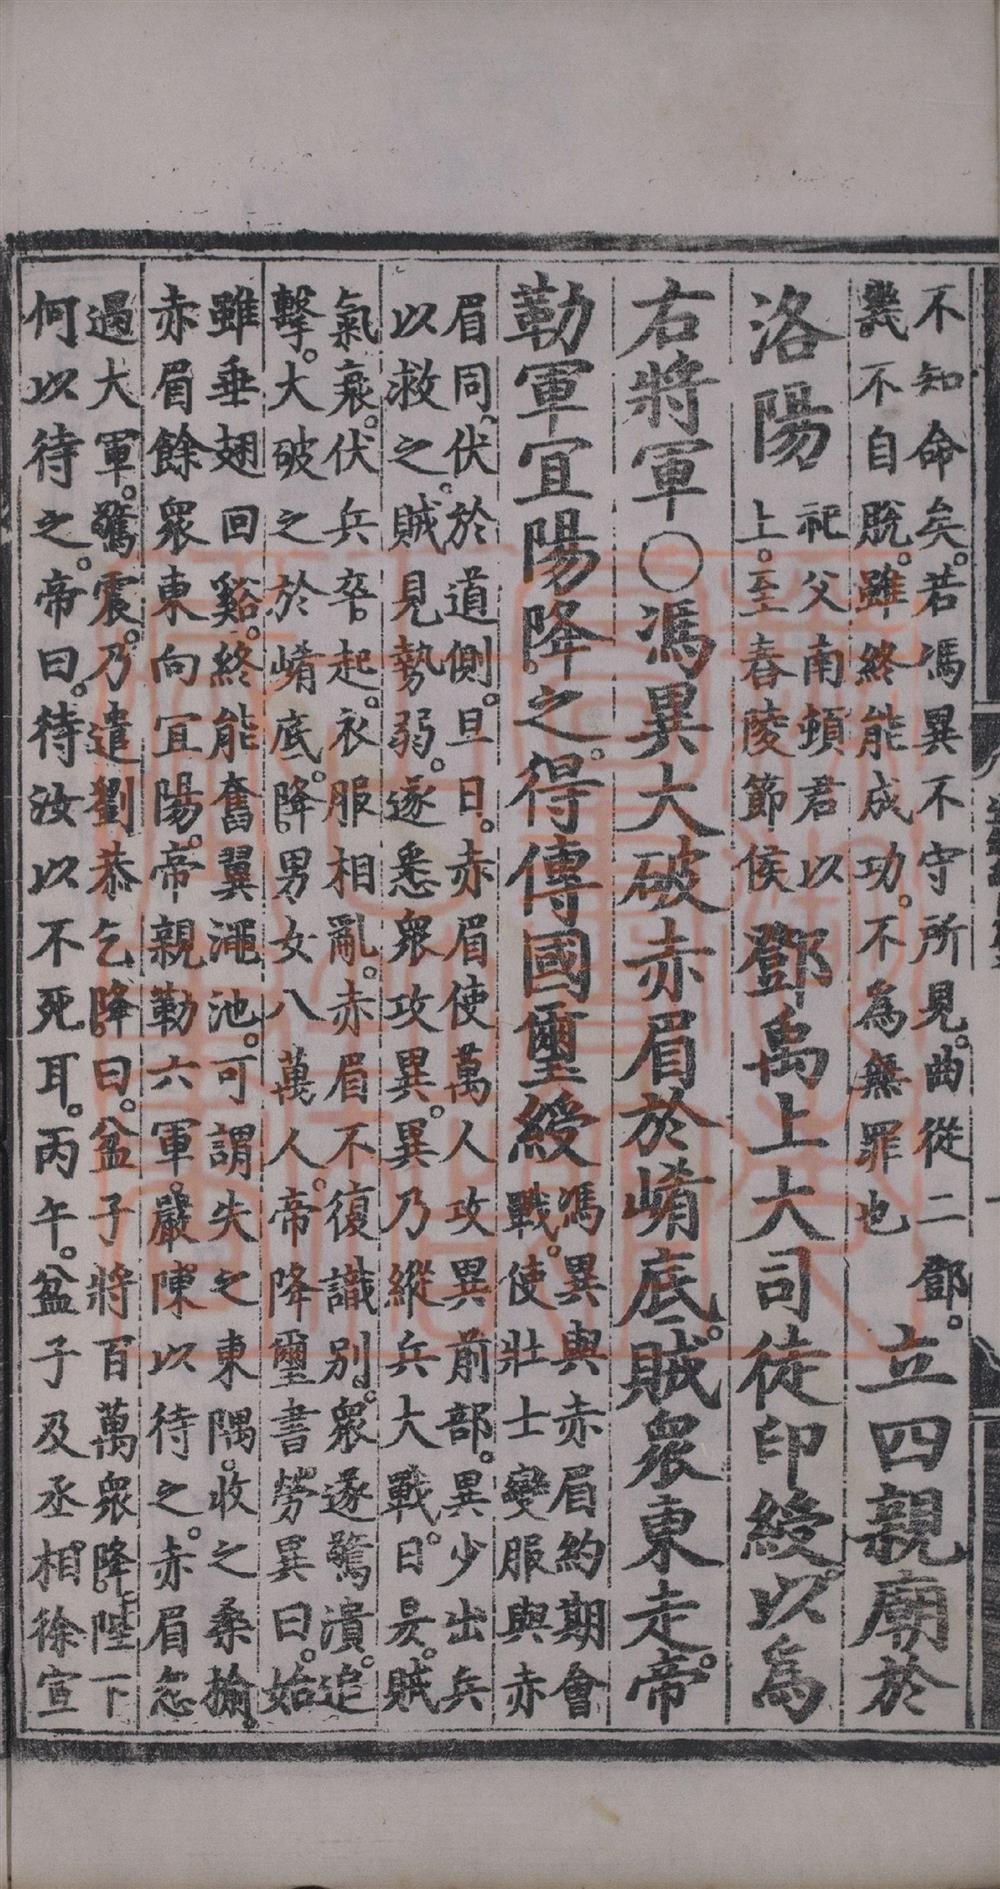 不知命矣。若馮異不守所見。曲從二鄧。
幾不自脫。雖終能成功。不為無罪也
立四親廟於
洛陽
祀父南頓君以
上。至舂陵節侯
鄧禹上大司徒印綬。以為
右將軍〇馮異大破赤眉於崤底。賊衆東走。帝
勒軍宜陽降之。得傳國璽綬
馮異與赤眉約期會
戰。使壯士變服與赤
眉同。伏於道側。旦日。赤眉使萬人攻異前部。異少出兵
以救之。賊見勢弱。遂悉衆攻異。異乃縱兵大戰。日昃。賊
氣衰。伏兵卒起。衣服相亂。赤眉不復識別。衆遂驚潰。追
擊。大破之於崤底。降男女八萬人。帝降璽書勞異曰。始
雖垂翅回谿。終能奮翼澠池。可謂失之東隅。收之桑榆。
赤眉餘衆東向宜陽。帝親勒六軍。嚴陳以待之。赤眉忽
遇大軍。驚震。乃遣劉恭乞降曰。盆子將百萬衆降。陛下
何以待之。帝曰。待汝以不死耳。丙午。盆子及丞相徐宣